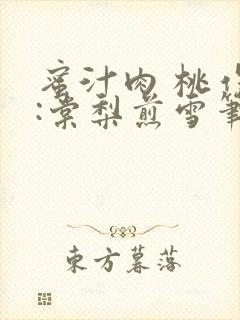 蜜汁肉桃作
:棠梨煎雪笔
東方暮落